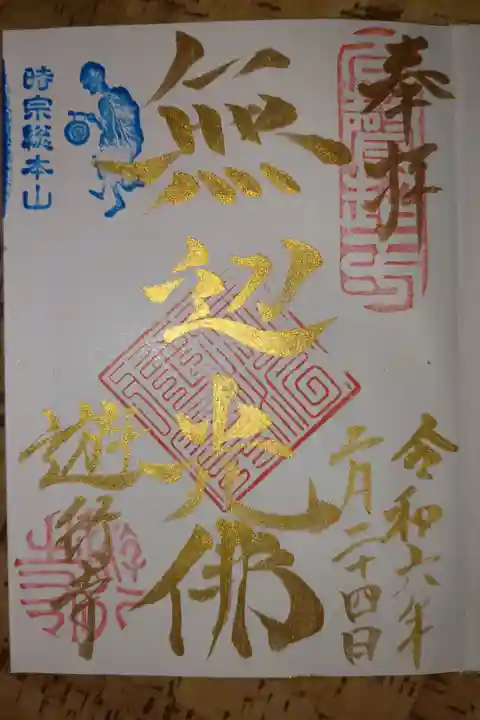 奉拝
令和六年
二月二十四日
無辺光佛
遊行寺
時宗総本山